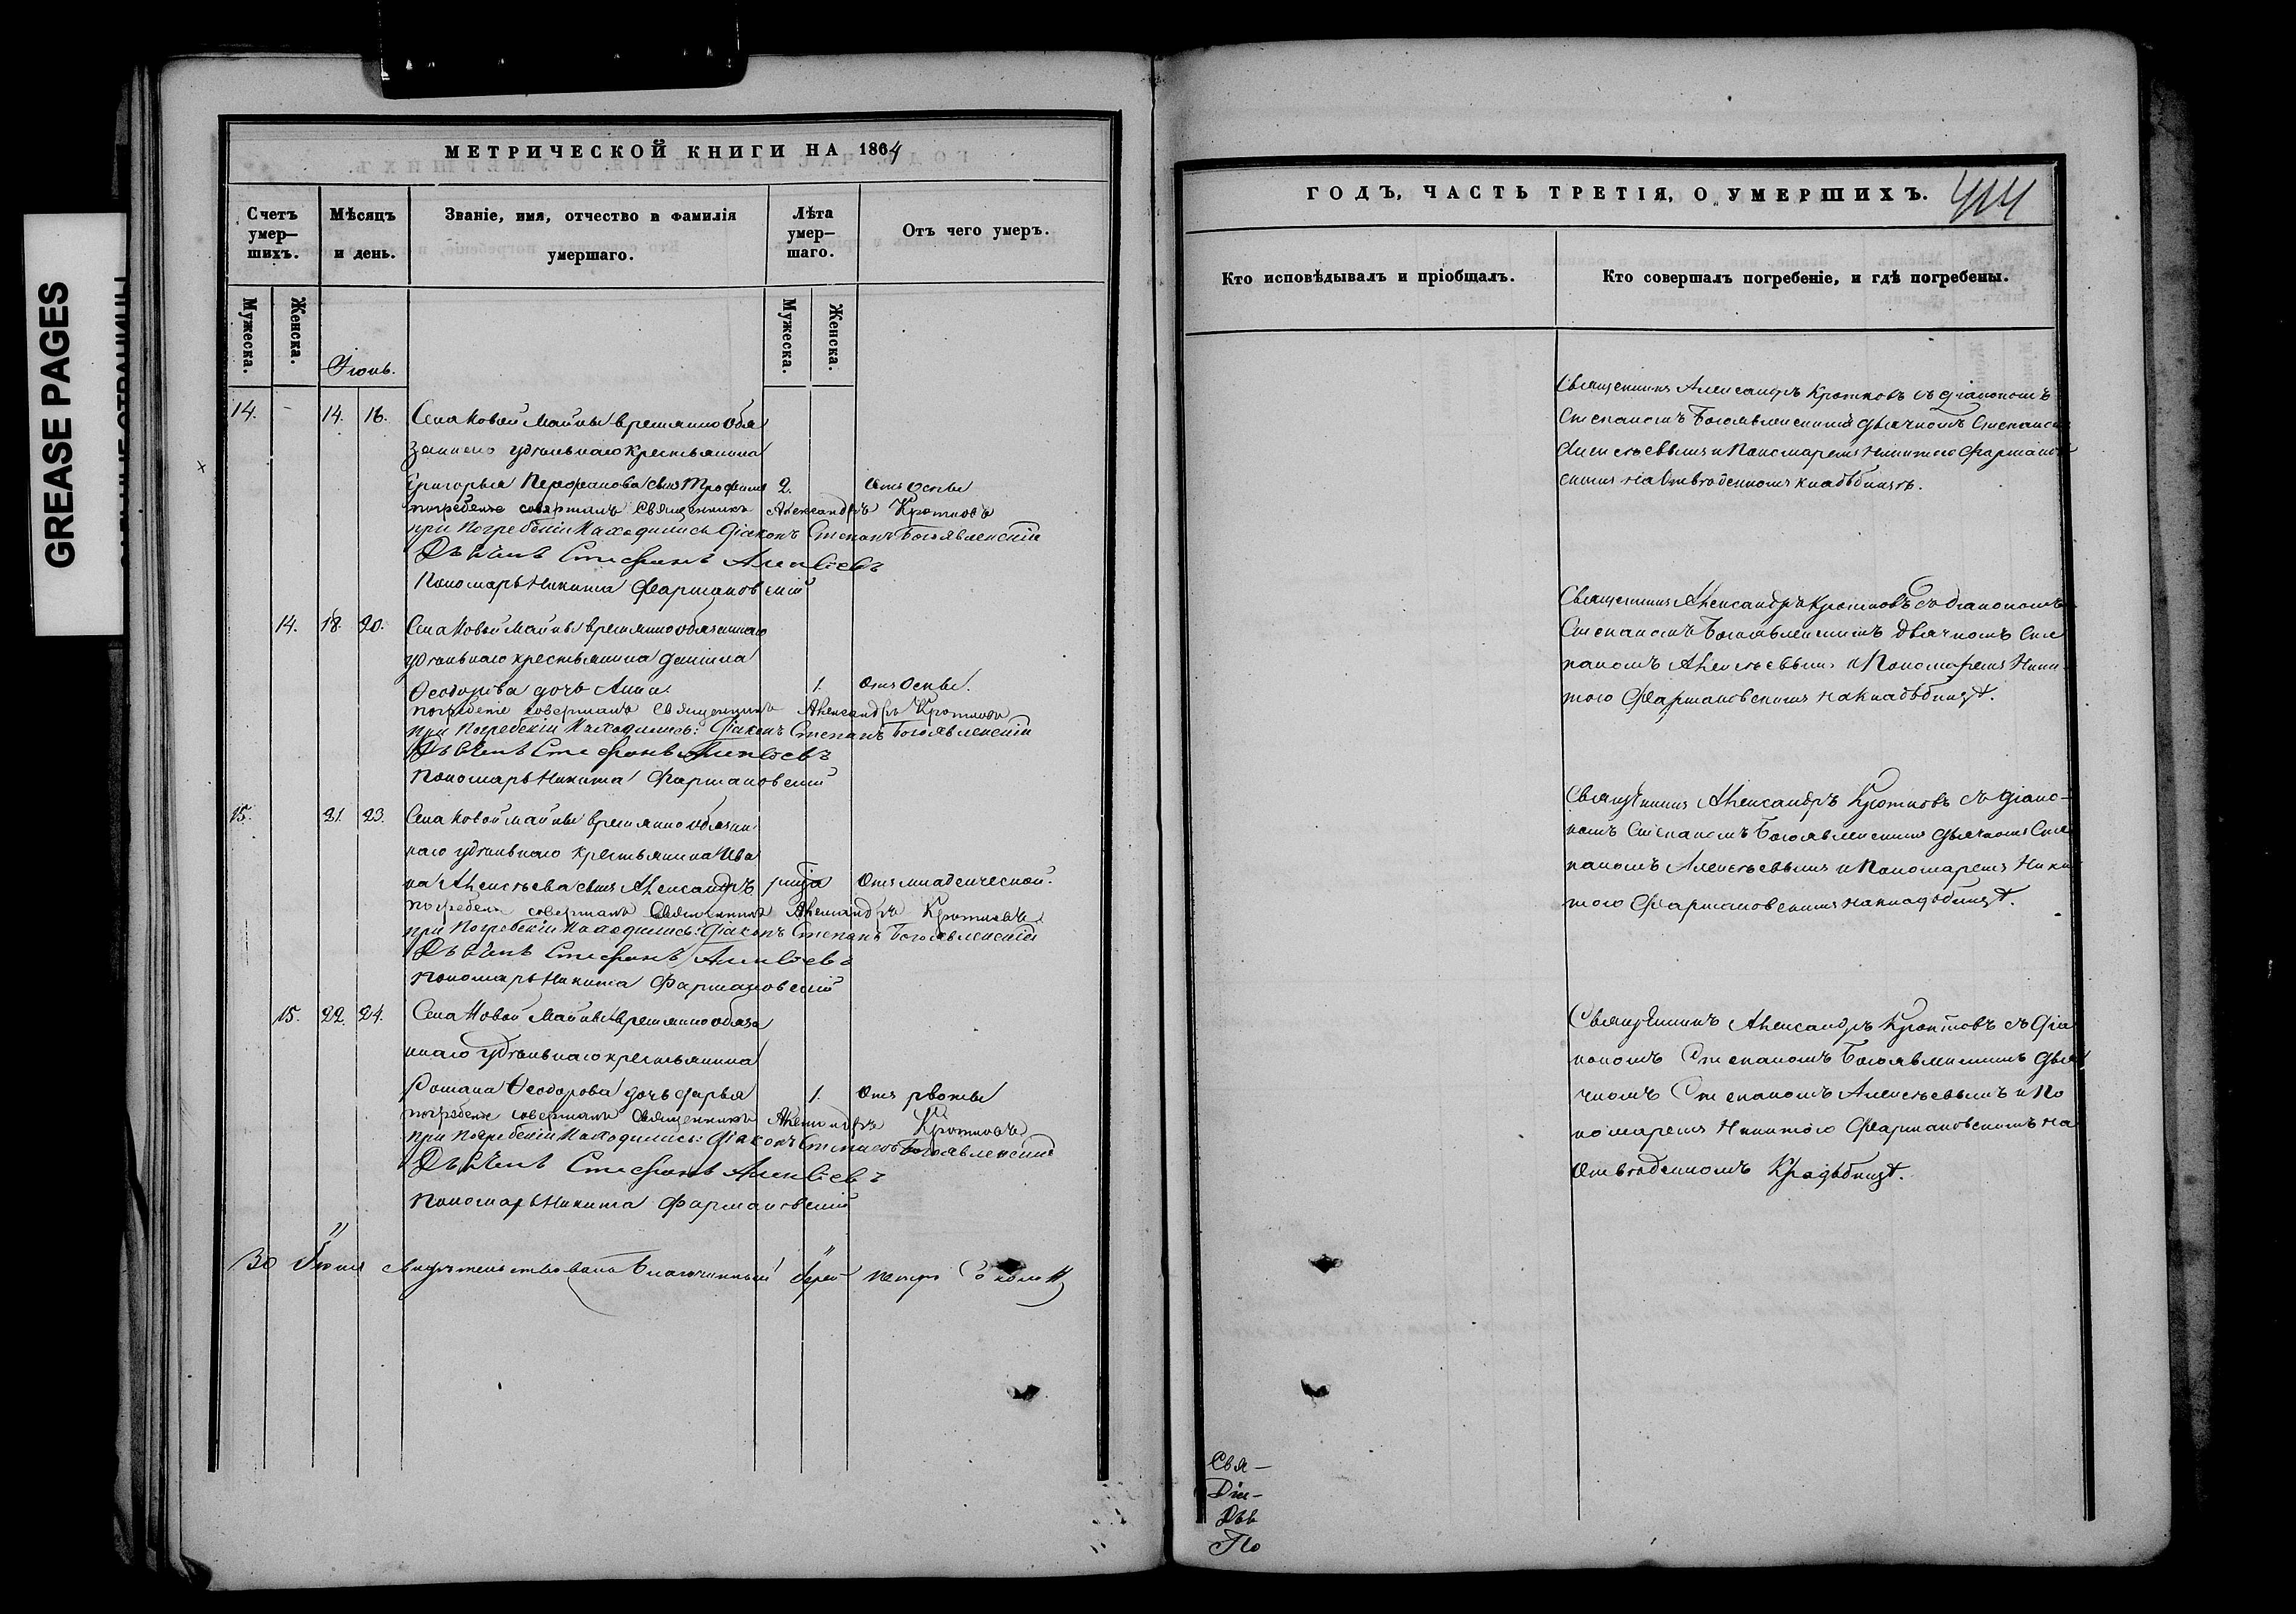 GREASE PAGES
МЕТРИЧЕСКОЙ КНИГИ НА 1864
Счетъ умер—шихъ.
Мѣсяцъ и день.
Званіе, имя, отчество и фамилія умершаго.
Лѣта умер—шаго.
Отъ чего умеръ.
Мужеска.
Женска.
Іюнь.
Мужеска.
Женска.
14. - 14. 16. Села Новой Майны временно обя
заннаго удѣльнаго крестьянина
Григорья сынъ Трофимъ 2. отъ оспы
погребеніе совершалъ Священникъ Александръ Кротковъ
при погребеніи находились Діаконъ Степанъ Богоявленскій
Дьячекъ Стефанъ Алексѣевъ
Пономарь Никита Фармаковскій
14. 18. 20. Села Новой Майны временно обязаннаго
удѣльнаго крестьянина Данила
Ѳеодорова дочь Анна 1. отъ оспы.
погребеніе совершалъ Священникъ Александръ Кротковъ
при погребеніи находились: Діаконъ Степанъ Богоявленскій
Дьячекъ Стефанъ Алексѣевъ
Пономарь Никита Фармаковскій
15. 21. 23. Села Новой Майны временно обязан
наго удѣльнаго крестьянина Ива
на Алексѣева сынъ Александръ отъ младенческой.
погребеніе совершалъ Священникъ Александръ Кротковъ
при погребеніи находились: Діаконъ Степанъ Богоявленскій
Дьячекъ Стефанъ Алексѣевъ
Пономарь Никита Фармаковскій
15. 22. 24. Села Новой Майны временно обяза
ннаго удѣльнаго крестьянина
Романа Ѳеодорова дочь Дарья 1. отъ рвоты
погребеніе совершалъ Священникъ Александръ Кротковъ
при погребеніи находились: Діаконъ Степанъ Богоявленскій
Дьячекъ Стефанъ Алексѣевъ
Пономарь Никита Фармаковскій
30 Іюня свидѣтельствовалъ Благочинный Іерей Петръ
ГОДЪ, ЧАСТЬ ТРЕТІЯ, О УМЕРШИХЪ.
414
Кто исповѣдывалъ и пріобщалъ.
Кто совершалъ погребеніе, и гдѣ погребены.
Священникъ Александръ Кротковъ съ діакономъ
Степаномъ Богоявленскимъ дьячкомъ Степаномъ
Алексѣевымъ и Пономаремъ Никитою Фармаков
скимъ на отведенномъ кладбищѣ.
Священникъ Александръ Кротковъ съ діакономъ
Степаномъ Богоявленскимъ дьячкомъ Сте
паномъ Алексѣевымъ и Пономаремъ Ники
тою Фармаковскимъ на кладбищѣ.
Священникъ Александръ Кротковъ съ діако-
номъ Степаномъ Богоявленскимъ дьячкомъ Сте
паномъ Алексѣевымъ и Пономаремъ Ники
тою Фармаковскимъ на кладбищѣ.
Священникъ Александръ Кротковъ съ діа
кономъ Степаномъ Богоявленскимъ дья
чкомъ Степаномъ Алексѣевымъ и По
номаремъ Никитою Фармаковскимъ на
отведенномъ Кладбищѣ.
Свя—
Діа—
Дья
По